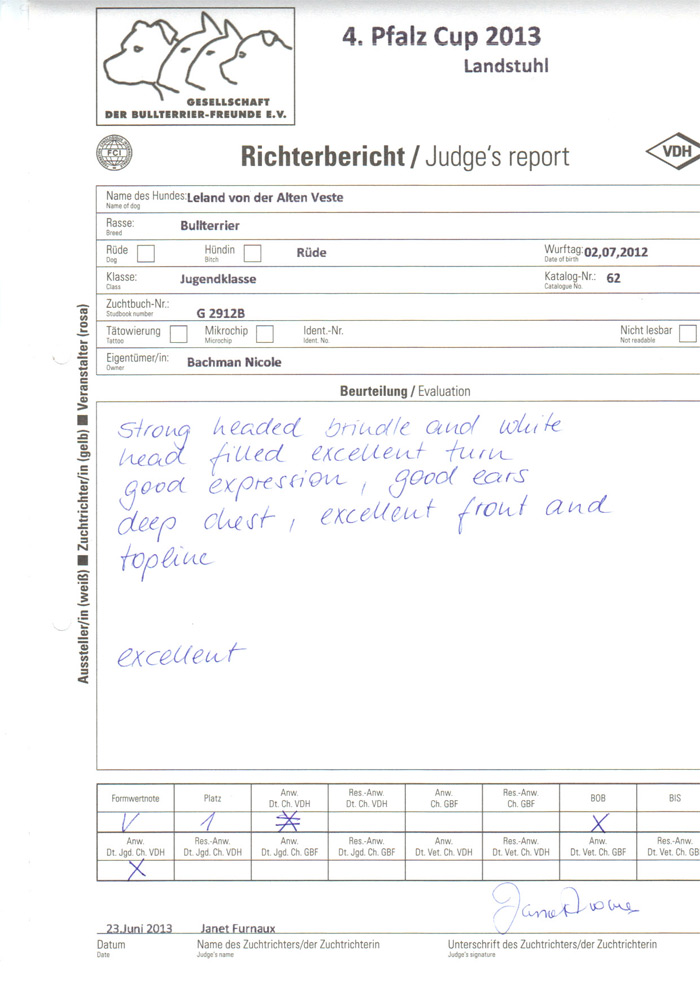 4. Pfalz Cup 2013
Landstuhl
GESELLSCHAFT
DER BULLTERRIER-FREUNDE E.V.
FCI
Richterbericht / Judge's report
VDH
Name des Hundes: Leland von der Alten Veste
Name of dog
Rasse: Bullterrier
Breed
Rüde Hündin Rüde Wurftag: 02,07,2012
Dog Bitch Date of birth
Klasse: Jugendklasse Katalog-Nr.: 62
Class Catalogue No.
Zuchtbuch-Nr.: G 2912B
Studbook number
Tätowierung Mikrochip Ident.-Nr. Nicht lesbar
Tattoo Microchip Ident. No. Not readable
Eigentümer/in: Bachman Nicole
Owner
Beurteilung / Evaluation
Aussteller/in (weiß) ■ Zuchtrichter/in (gelb) ■ Veranstalter (rosa)
strong headed brindle and white
head filled excellent turn
good expression, good ears
deep chest, excellent front and
topline
excellent
Formwertnote Platz Anw. Res.-Anw. Anw. Res.-Anw. BOB BIS
Dt. Ch. VDH Dt. Ch. VDH Ch. GBF Ch. GBF
V 1 X X
Anw. Res.-Anw. Anw. Res.-Anw. Anw. Res.-Anw. Anw. Res.-Anw.
Dt. Jgd. Ch. VDH Dt. Jgd. Ch. VDH Dt. Jgd. Ch. GBF Dt. Jgd. Ch. GBF Dt. Vet. Ch. VDH Dt. Vet. Ch. VDH Dt. Vet. Ch. GBF Dt. Vet. Ch. GB
X
23.Juni 2013 Janet Furnaux
Datum Name des Zuchtrichters/der Zuchtrichterin Unterschrift des Zuchtrichters/der Zuchtrichterin
Date Judge's name Judge's signature